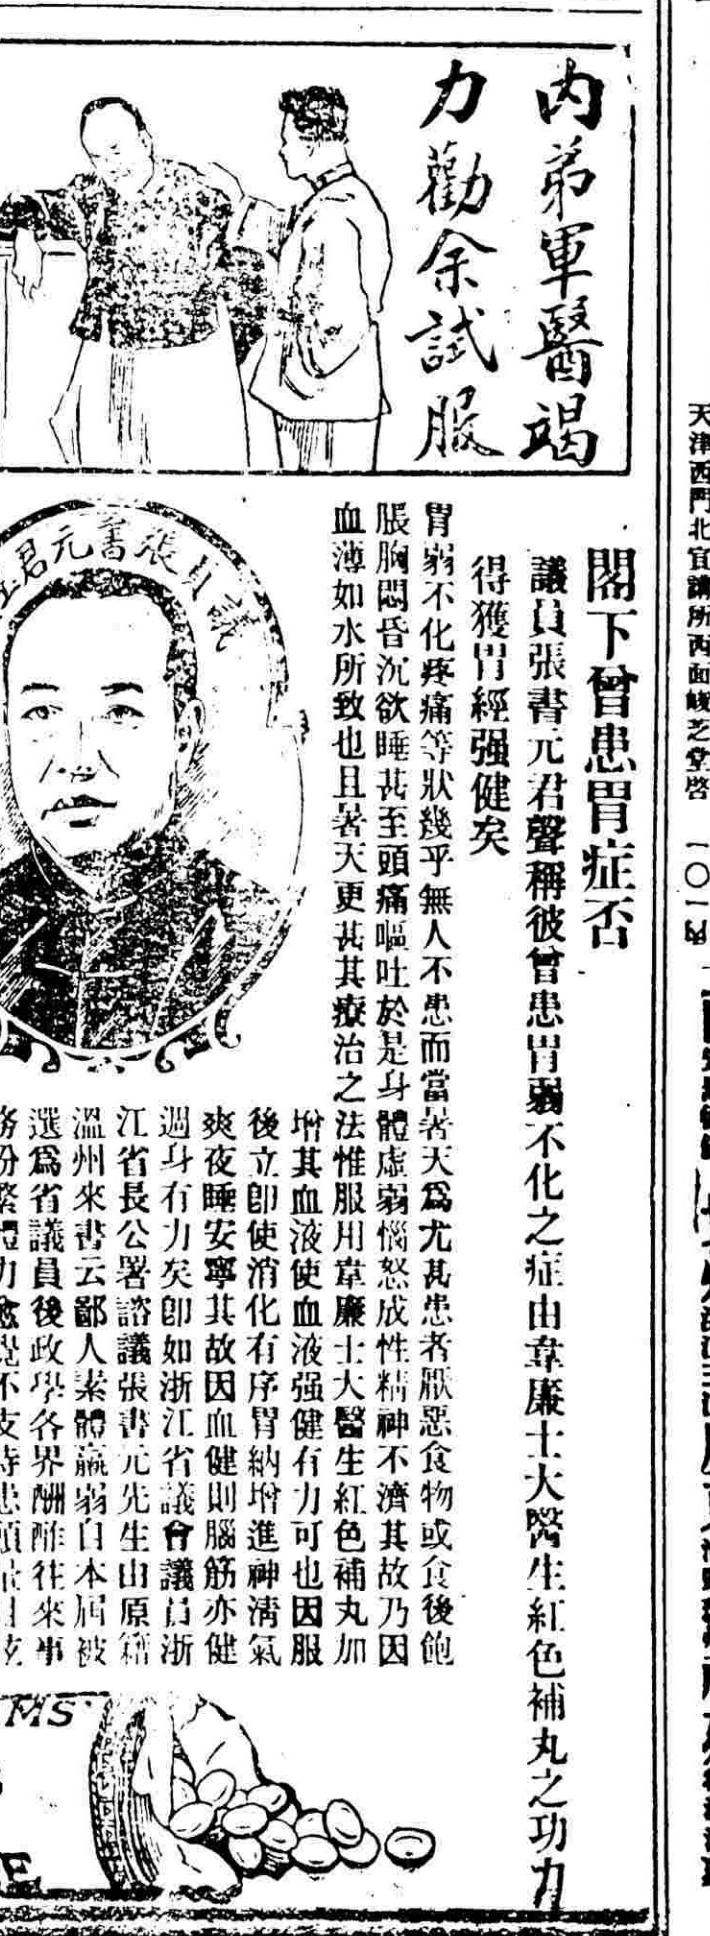 天津西門北宣講所西面
芝堂啓
內弟軍醫竭
力勸余試服
閣下曾患胃症否
議員張書元君聲稱彼曾患胃弱不化之症由韋廉士大醫生紅色補丸之功力
得獲胃經强健矣
胃弱不化疼痛等狀幾乎無人不患而當暑天爲尤甚患者厭惡食物或食後飽
脹胸悶昏沉欲睡甚至頭痛嘔吐於是身體虛弱惱怒成性精神不濟其故乃因
血薄如水所致也且暑天更甚其療治之法惟服用韋廉士大醫生紅色補丸加
增其血液使血液强健有力可也因服
後立卽使消化有序胃納增進神淸氣
爽夜睡安寧其故因血健則腦筋亦健
週身有力矣卽如浙江省議會議員浙
江省長公署諮議張書元先生由原籍
溫州來書云鄙人素體羸弱自本屆被
選爲省議員後政學各界酬酢往來事
務份繁體力愈覺不支時患頭
議員張書元君
MS
E